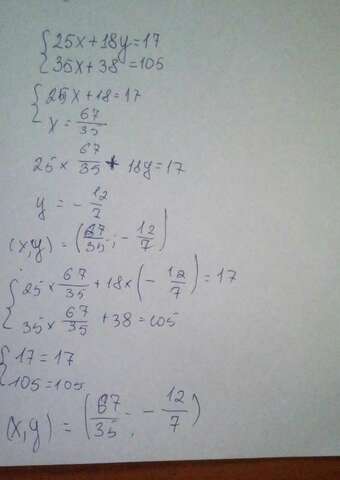 {25x+18y=17
{35x+38 =105
{25x+18=17
{x= 67/35
25× 67/35 + 18y=17
y = - 12/7
(x,y) = (67/35; - 12/7)
{25× 67/35 +18×(- 12/7) = 17
{35× 67/35 +38 =105
{17=17
{105=105
(x,y) = (67/35; - 12/7)